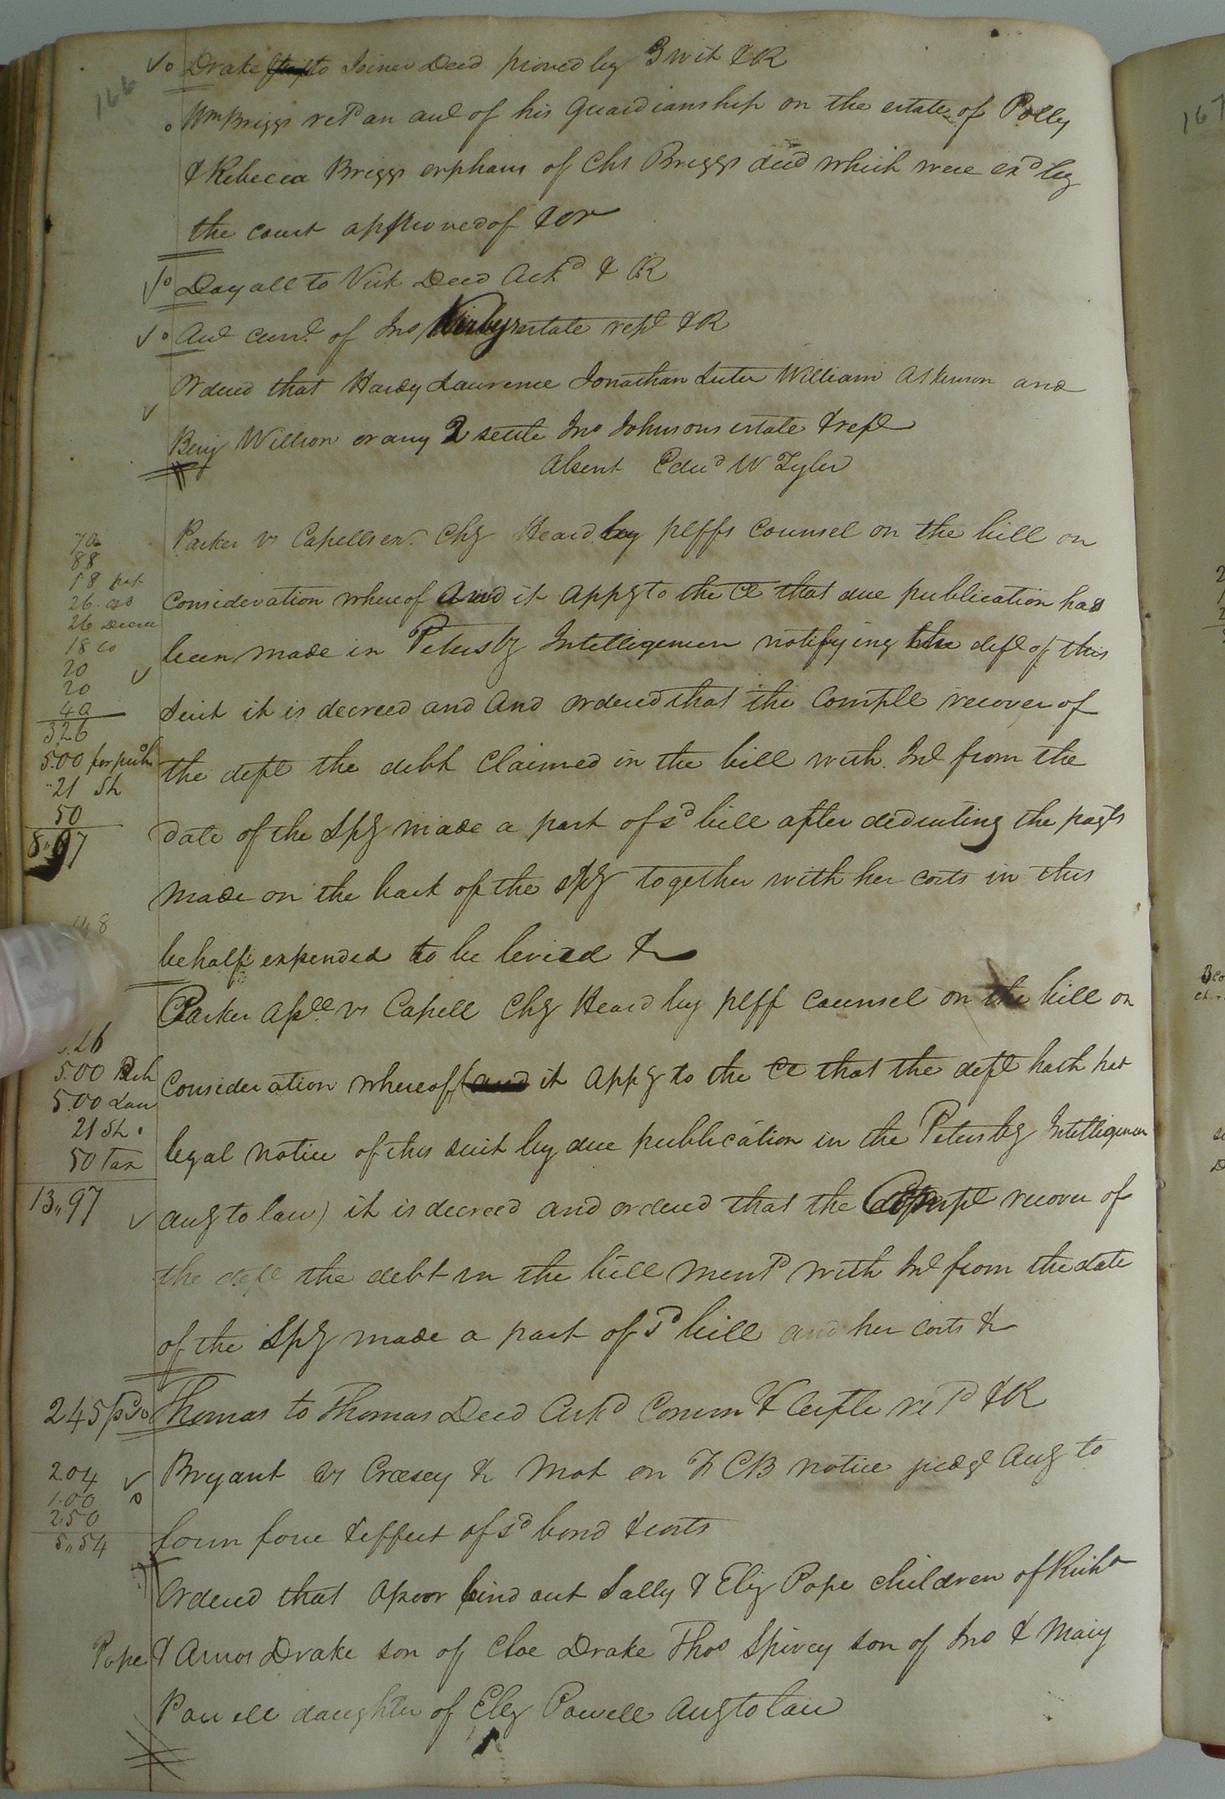 166
Drake to Joiner Deed proved by 3 wit & R
Wm Briggs retd an aut of his guardianship on the estates of Polly
& Rebecca Briggs orphans of Chs Briggs decd which were exd by
the court approved of & or
Dayall to Vick Deed Ackd & R
Aut curt of Jno Kirbys estate rept & R
Ordered that Hardy Laurence Jonathan Luter William Atkinson and
Benj Willson or any 2 settle Jno Johnsons estate & rept
Absent Edwd W Tyler
Parker vs Capells exr Chy Heard by pltffs counsel on the bill on
consideration whereof and it appg to the Ct that due publication has
been made in Petersbg Intelligencer notifying the deft of this
suit it is decreed and and ordered that the complt recover of
the deft the debt claimed in the bill with Int from the
date of the Spy made a part of sd bill after deducting the payts
made on the back of the spy together with her costs in this
behalf expended to be levied &
Parker aplt vs Capell Chy Heard by pltff counsel on the bill on
consideration whereof (and it appg to the Ct that the deft hath had
legal notice of this suit by due publication in the Petersbg Intelligencer
aug to law) it is decreed and ordered that the complt recover of
the deft the debt in the bill mentd with Int from the date
of the Spy made a part of sd bill and her costs &
Thomas to Thomas Deed Ackd Comm & Certfte retd & R
Bryant vs Creasey & Mot on F C B notice judgt aug to
form force & effect of sd bond & costs
Ordered that opoor bind out Sally & Eliz Pope children of Richd
Pope & Amos Drake son of Cloe Drake Thos Spivey son of Jno & Mary
Powell daughter of Eliz Powell aug to law
88
20
20
326
5.00 for pub
21 Sh
50
8,,97
5.00 Pub
5.00 Law
21 Sh
50 Tax
13,,97
245 pd
204
1.00
250
5,,54
167